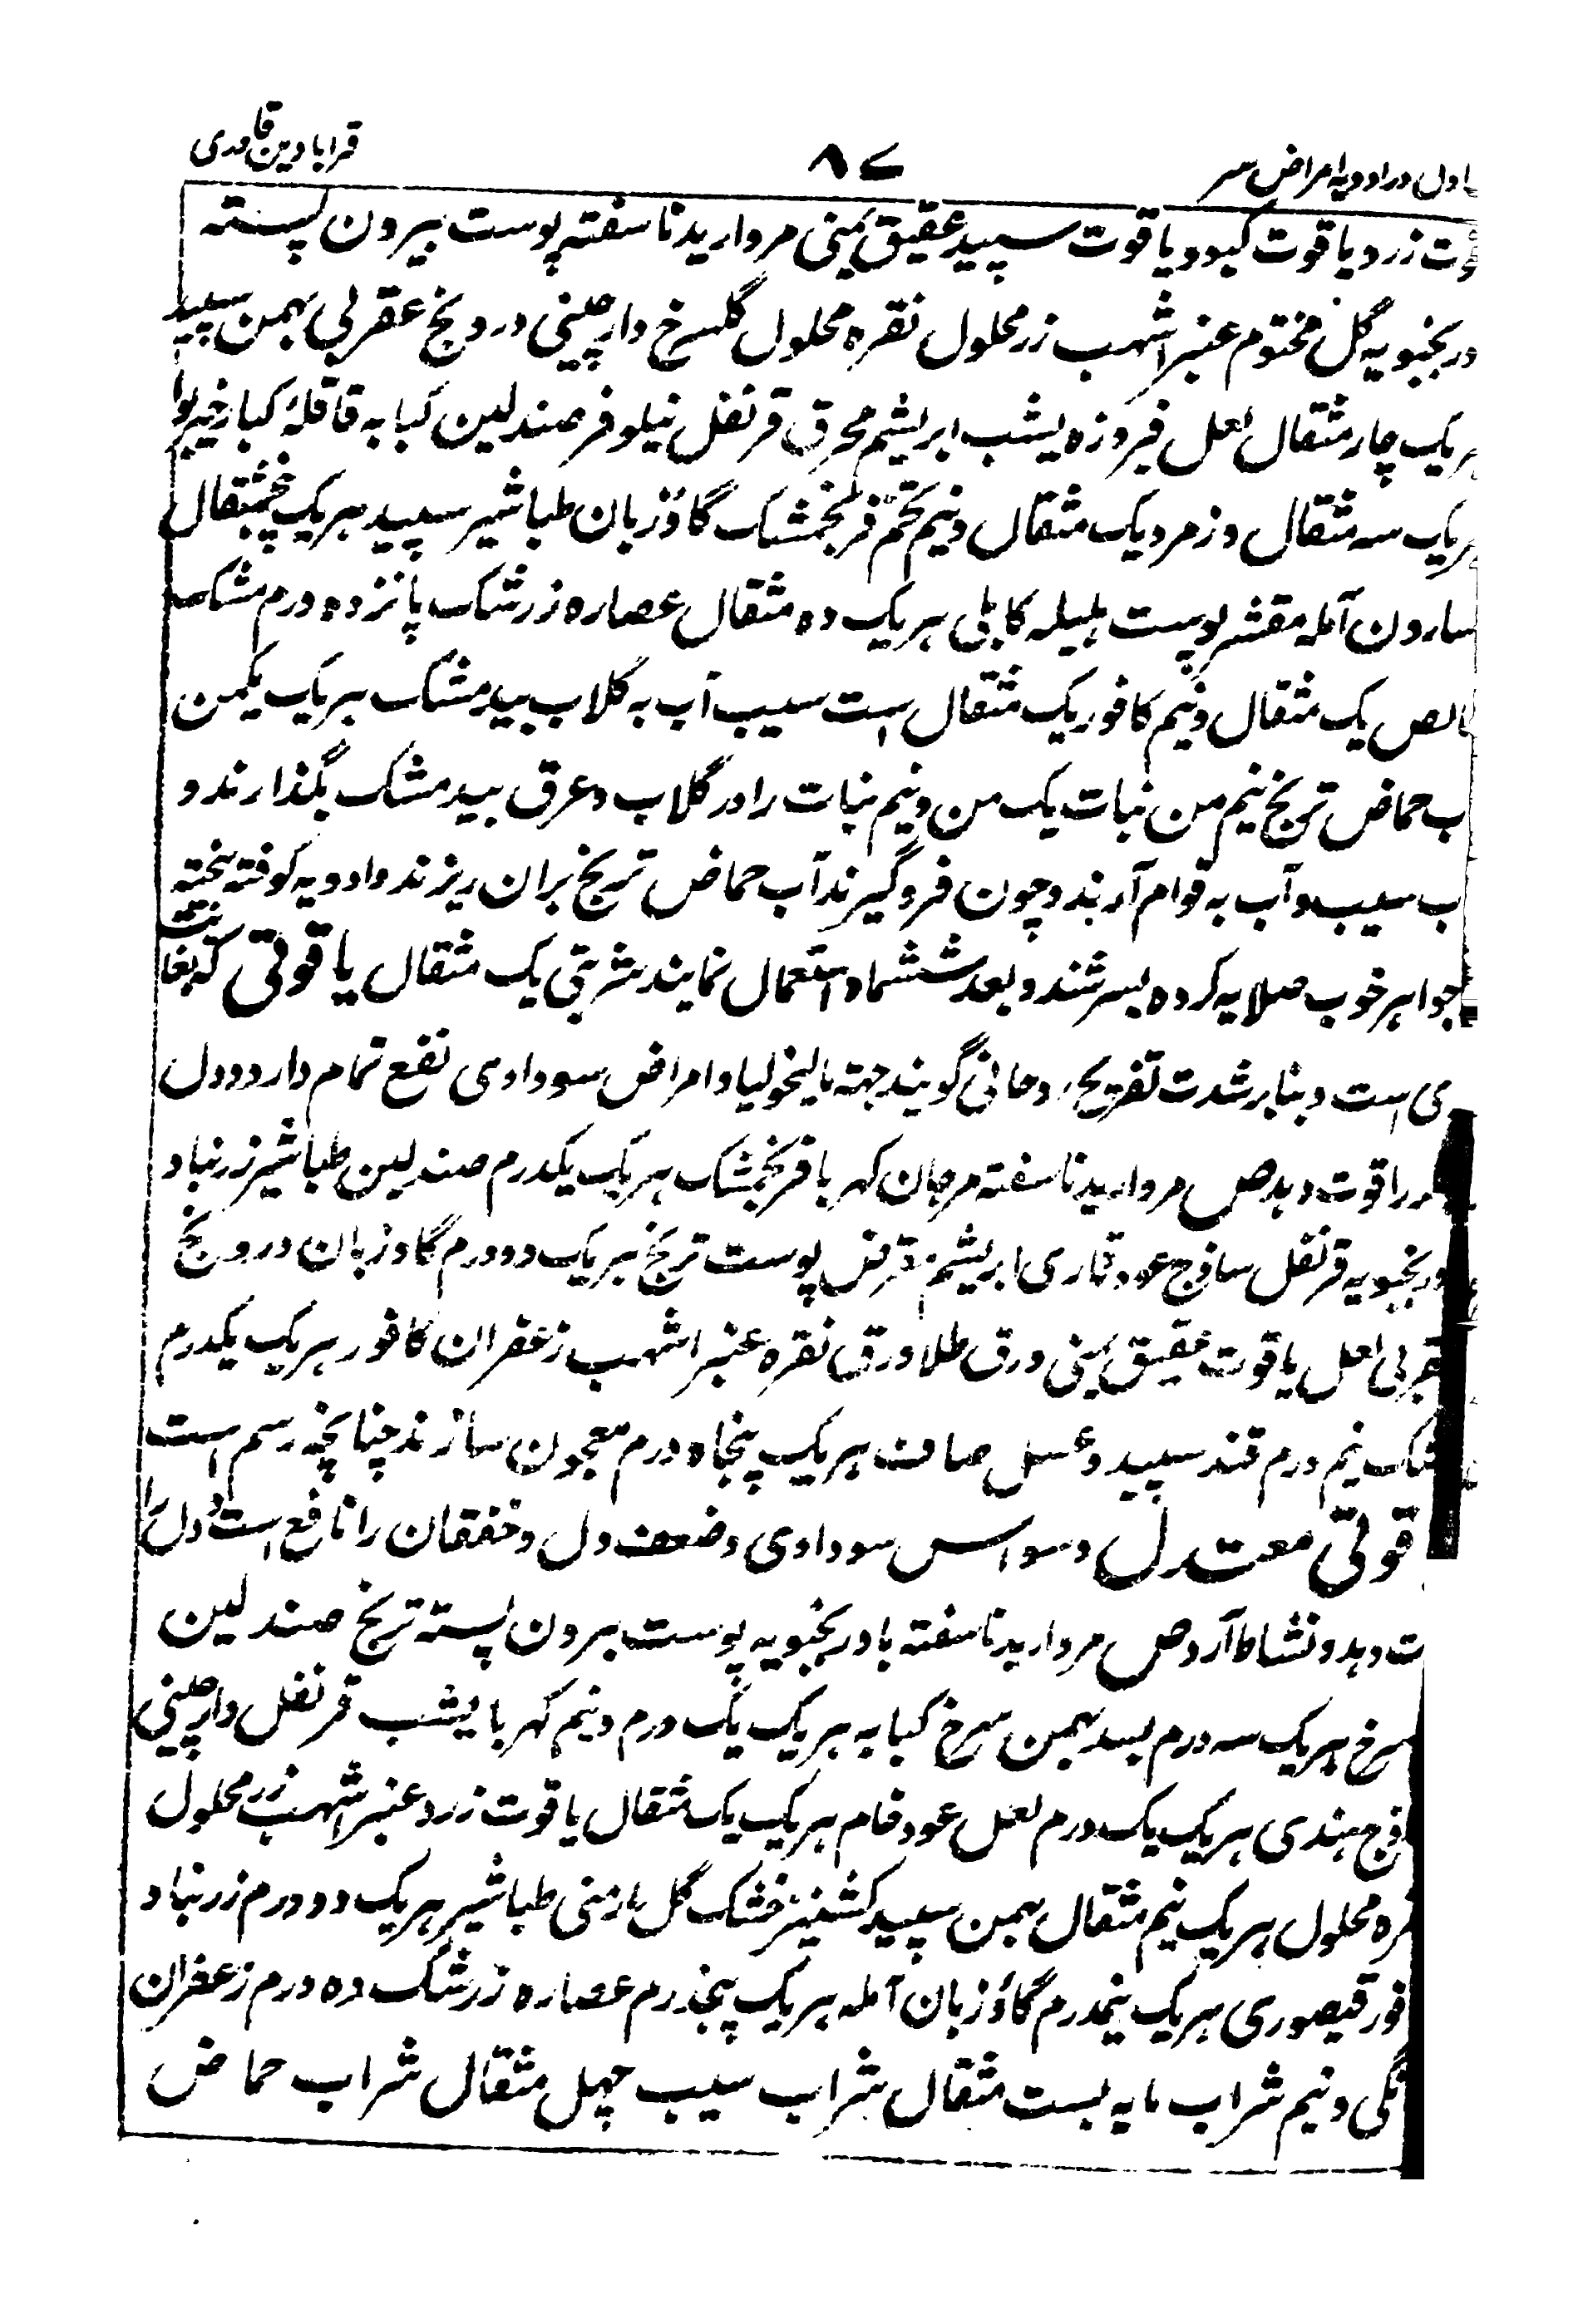 اول در ادویه امراض سر ۸۷ قرابادین قادری
زرد یاقوت کبود و یاقوت سپید عقیق یمنی مروارید ناسفته پوست بیرون پسته
درنجبویه گل مختوم عنبر اشهب زر محلول نقره محلول گلسرخ دارچینی درونج عقربی بهمن سپید
هریک چار مثقال لعل فیروزه یشب ابریشم محرق قرنفل نیلوفر صندلین کبابه قاقلهٔ کبار خیربوا
هریک سه مثقال و زمرد یک مثقال و نیم تخم فرنجمشک گاؤزبان طباشیر سپید هریک پنجمثقال
سارون آمله مقشر پوست ہلیله کابلی هریک ده مثقال عصاره زرشک پانزده درم مشک
الص یک مثقال و نیم کافور یک مثقال است سیب آب به گلاب بیدمشک هریک یکمن
ب حماض ترنج نیم من نبات یک من و نیم نبات را در گلاب و عرق بیدمشک بگذارند و
ب سیب و آب به قوام آرند و چون فرو گیرند آب حماض ترنج بران ریزند و ادویه کوفته بیخته
جواهر خوب صلایه کرده بسرشند و بعد ششماه استعمال نمایند شربتی یک مثقال یاقوتی که بغایت
ی است و بنابر شدت تفریح روحانی گویند جهته مالیخولیا و امراض سوداوی نفع تمام دارد و دل
را قوت دهد ص مروارید ناسفته مرجان کهربا فرنجمشک هریک یکدرم صندلین طباشیر زرنباد
درنجبویه قرنفل ساذج عود قماری ابریشم مقرض پوست ترنج هریک دو درم گاوزبان درونج
عقربی لعل یاقوت عقیق یمنی ورق طلا ورق نقره عنبر اشهب زعفران کافور هریک یکدرم
مشک نیم درم قند سپید و عسل صاف هریک پنجاه درم معجون سازند چنانچه رسم است
قوتی معتدل وسواس سوداوی و ضعف دل و خفقان را نافع است و دل را
ت دهد و نشاط آرد ص مروارید ناسفته بادرنجبویه پوست بیرون پسته ترنج صندلین
سرخ هریک سه درم بسد بهمن سرخ کبابه هریک یک درم و نیم کهربا یشب قرنفل دارچینی
ذج هندی هریک یک درم لعل عود خام هریک یک مثقال یاقوت زرد عنبر اشهب زر محلول
قره محلول هریک نیم مثقال بهمن سپید کشنیز خشک گل ارمنی طباشیر هریک دو درم زرنباد
فور قیصوری هریک نیمدرم گاؤزبان آمله هریک پنجدرم عصاره زرشک ده درم زعفران
نگی و نیم شراب مایه بست مثقال شراب سیب چهل مثقال شراب حماض